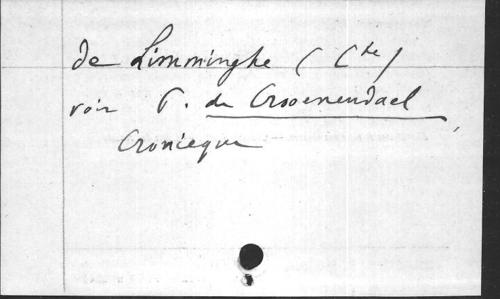 de Limminghe (Cte)
voir P. de Croonendael
Cronicque